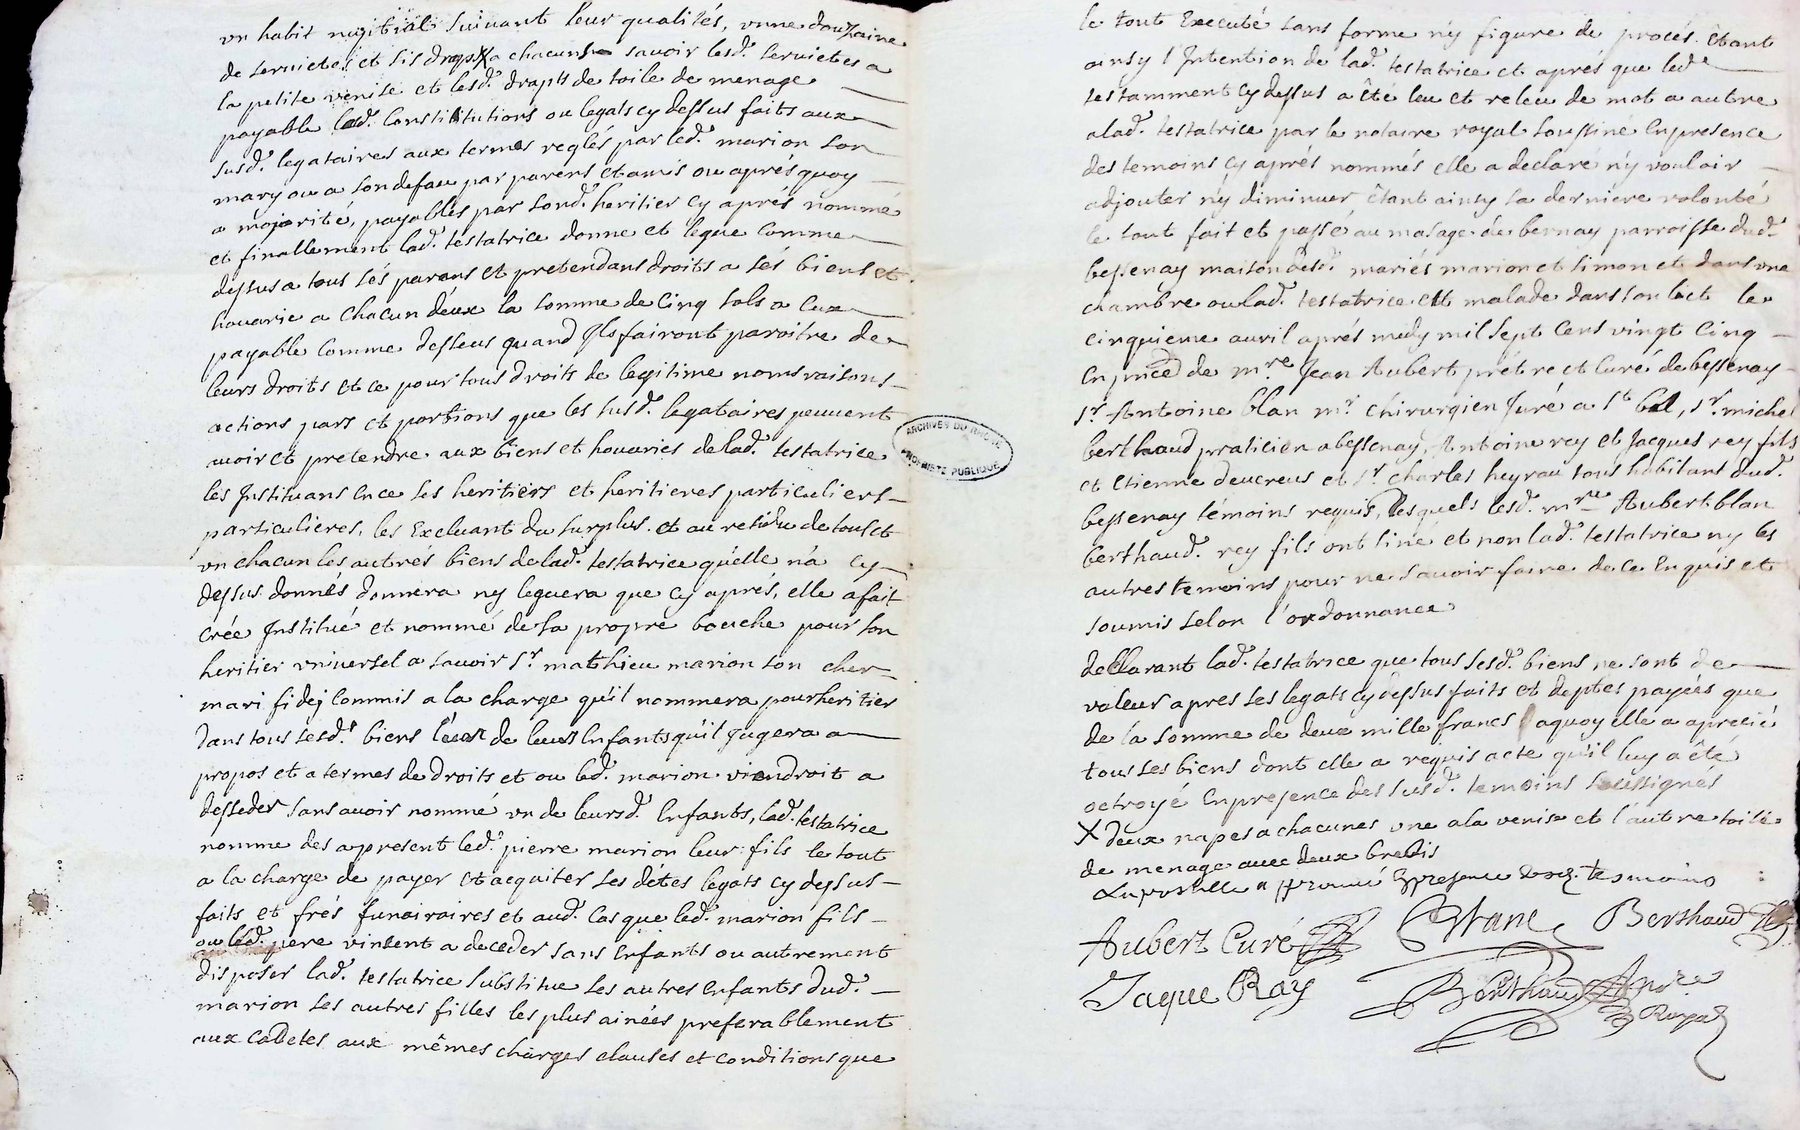 un habit nuptial suivant leur qualités, unne douzaine
de servietes et sis draps X a chacunse savoir lesd. serviettes a
la petite venise et lesd. drapts de toile de menage
payable lesd. Constitutions ou legats cy dessus faits aux
susd. legataires aux termes reglés par led. marion son
mary ou a son defau par parens et amis ou aprés quoy
a majorité, payables par sond. heritier cy aprés nommé
et finallement lad. testatrice donne et legue comme
dessus a tous sés parans et pretendans droits a sés biens et
houarie a chacun déux la somme de cinq sols a eux
payable comme dessus quand Ils fairont paroitre de
leurs droits et ce pour tous droits de legitime noms raisons
actions pars et portions que les susd. legataires peuvent
avoir et pretendre aux biens et houaries de lad. testatrice
les Instituans en ce ses heritiers et heritieres particuliers
particulieres, les Excluant du surplus. et au residu de tous et
un chacun les autrés biens de lad. testatrice quélle n'a cy
dessus donnés donnera ny leguera que cy aprés, elle a fait
crée Institué et nommé de sa propre bouche pour son
heritier universel a savoir sr. mathieu marion son cher
mari fidej commis a la charge qu'il nommera pour heritier
dans tous sésd. biens l'un de leurs Enfants qu'il Jugera a
propos et a termes de droits et ou led. marion viendroit a
desseder sans avoir nommé un de leursd. Enfants, lad. testatrice
nomme des a present led. pierre marion leur fils le tout
a la charge de payer et acquiter ses détes legats cy dessus
faits et frés funairaires et aud. cas que led. marion fils
ou led. pere vinsent a deceder sans enfants ou autrement
disposer lad. testatrice substitue ses autres enfants dud.
marion ses autres filles les plus ainées preferablement
aux cadetes aux mêmes charges clauses et conditions que
le tout Executé sans forme n'y figure de procés. Etant
ainsy l'Intention de lad. testatrice et aprés que led.
testamment cy dessus a été leu et releu de mot a autre
a lad. testatrice par le notaire royal soussiné En presence
des temoins cy aprés nommés elle a declaré n'y vouloir
adjouter n'y diminuer étant ainsy sa derniere volonté
le tout fait et passé au masage de bernay parroisse dud.
bessenay maison desd. mariés marion et simon et dans une
chambre ou lad. testatrice est malade dans son lict le
cinquieme avril aprés midy mil sept cens vingt cinq
En pnce de mre Jean Aubert prétre et Curé de bessenay
sr. Antoine blan mr. chirurgien Juré a st bel, sr. michel
berthaud praticien a bessenay, Antoine rey et Jacques rey fils
et Etienne deucreus et sr. charles heyrau tous habitans dud.
bessenay témoins requis, lesquels lesd. mre Aubert blan
berthaud. rey fils ont siné et non lad. testatrice ny les
autres temoins pour ne savoir faire de ce Enquis et
soumis selon l'ordonnance
declarant lad. testatrice que tous sesd. biens ne sont de
valeur apres ses legats cy dessus faits et deptes payées que
de la somme de deux mille francs a quoy elle a aprecié
tous ses biens dont elle a requis acte qu'il luy a été
octroyé En presence des susd. temoins soussignés
X deux napes a chacunes une a la venise et l'autre toile
de menage avec deux brebis
presence temoins
Aubert Curé Blanc Berthaud
Jaque Ray Berthaud
Royal
ARCHIVES DU RHÔNE
PROPRIÉTÉ PUBLIQUE